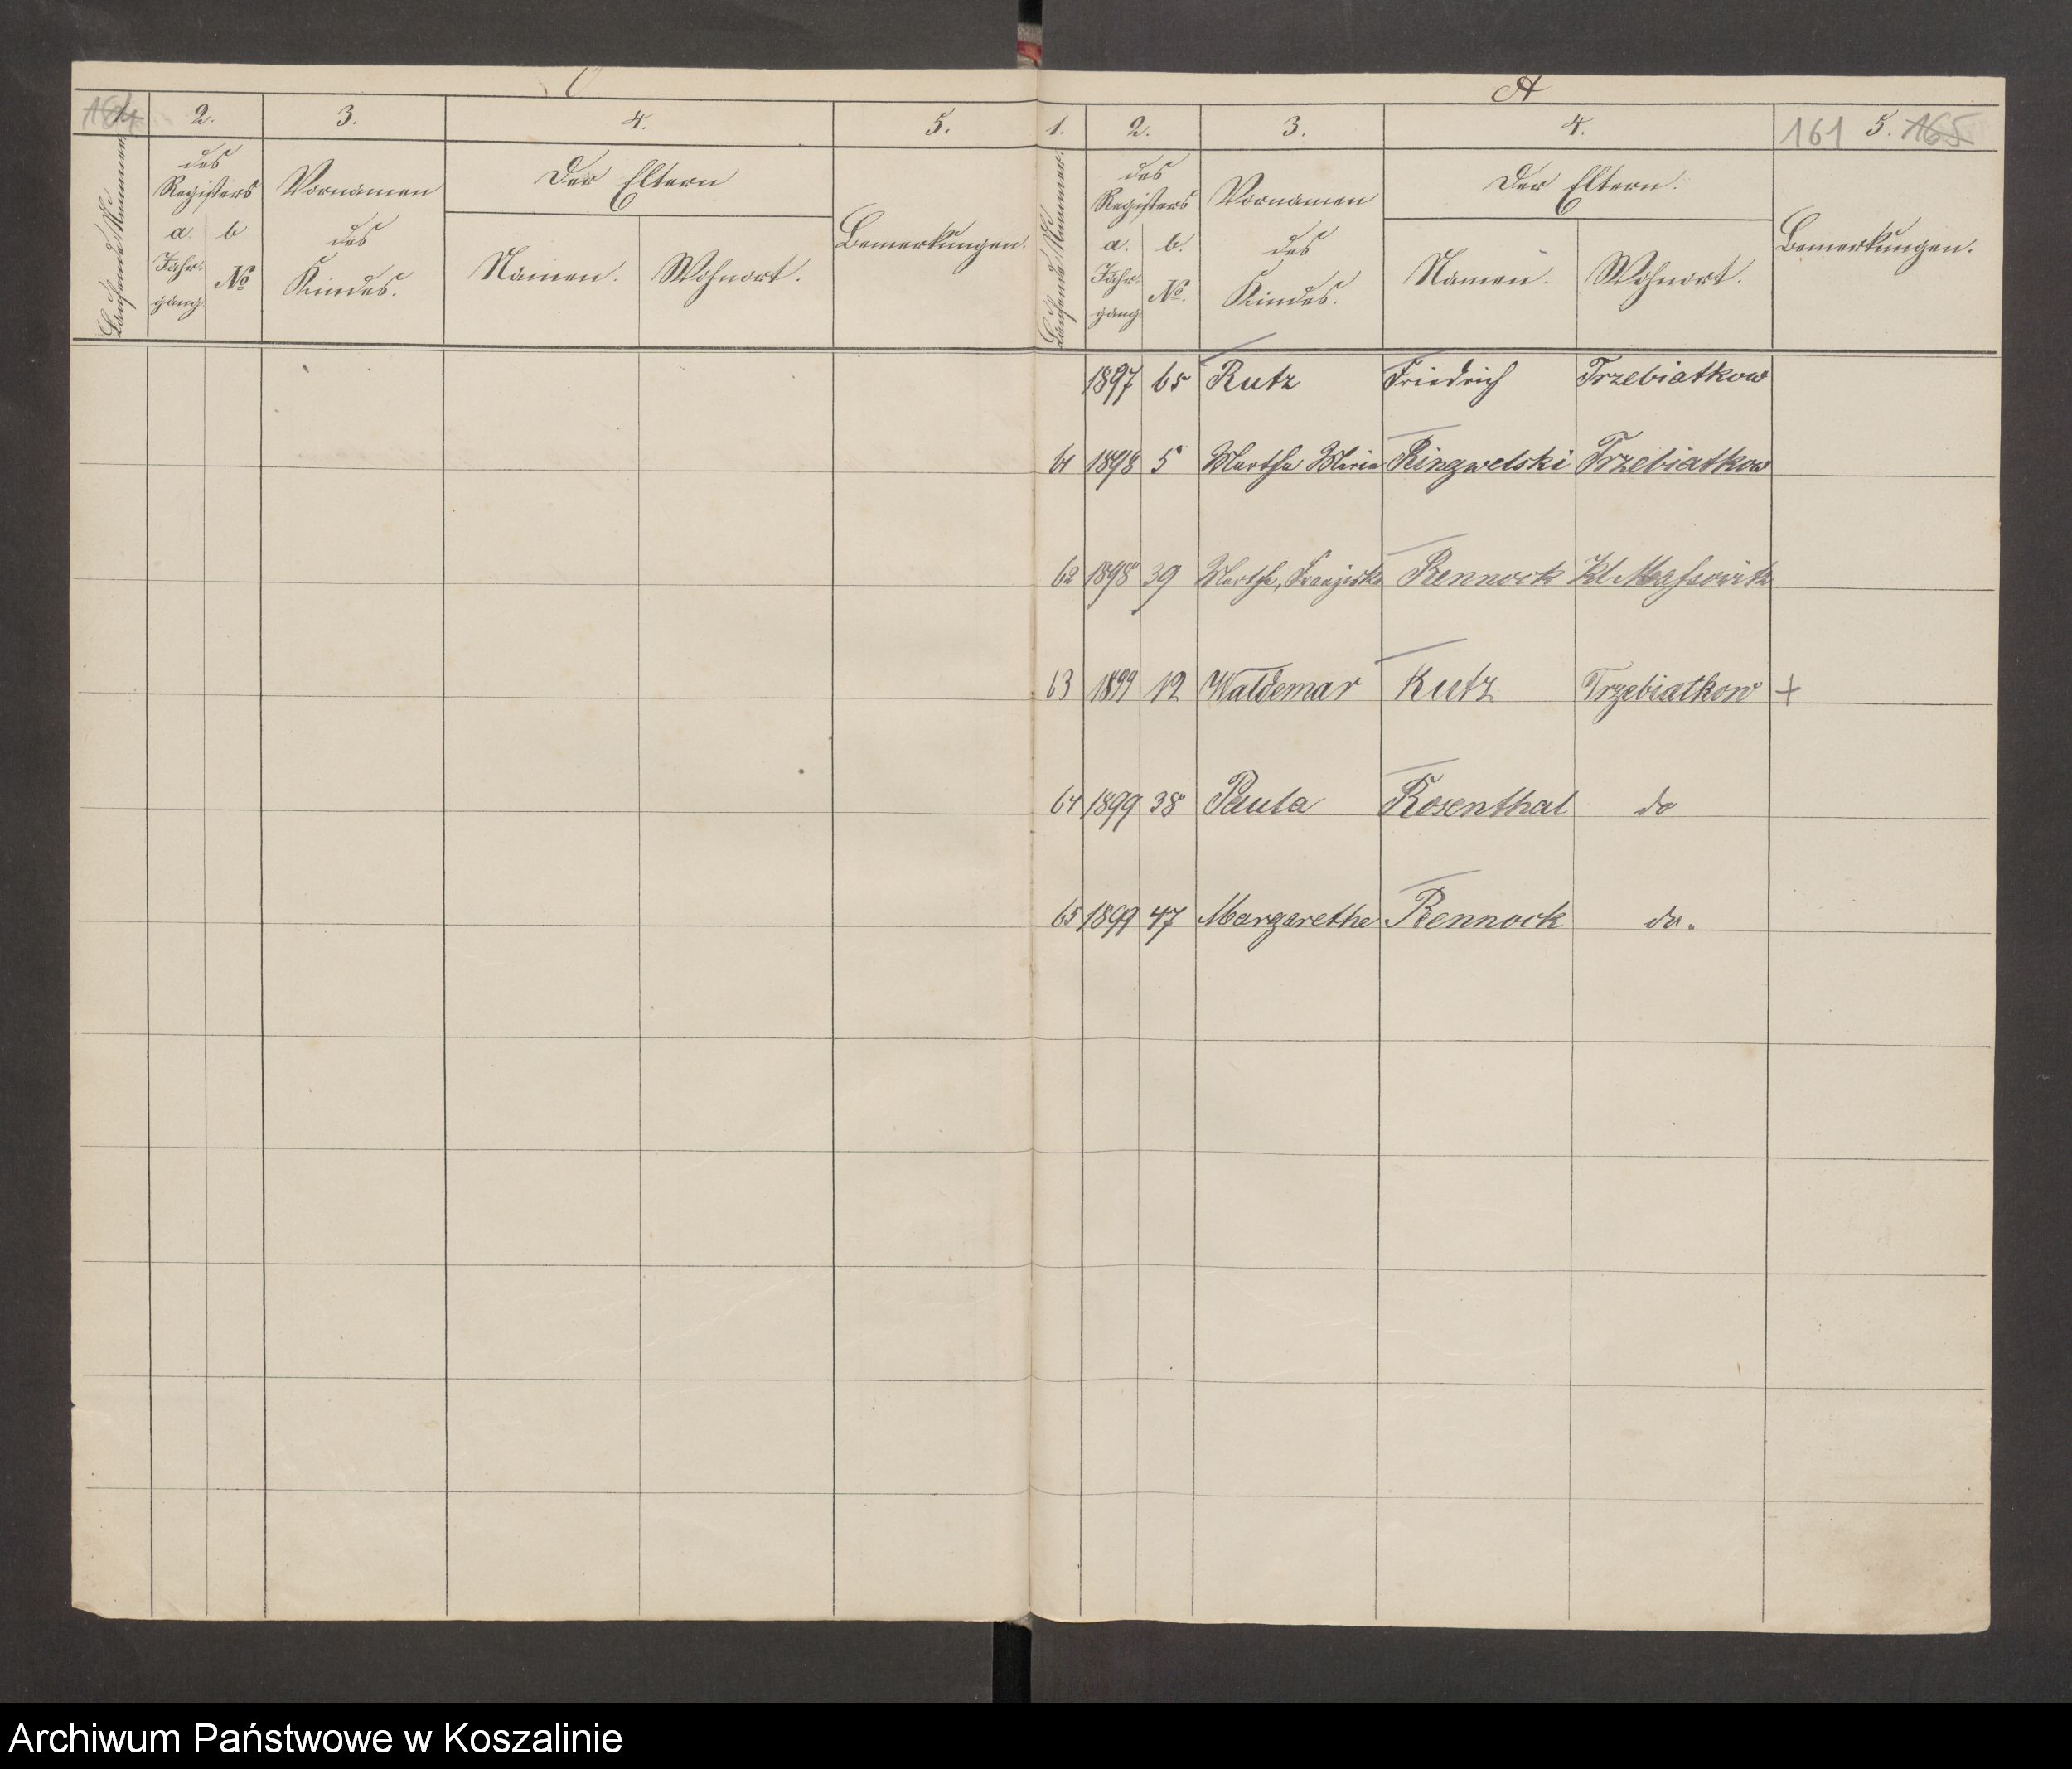 1. 2. 3. 4. 5.
Laufende Nummer.
des
Registers
a. b
Jahr-
gang
No
Vornamen
des
Kindes.
Der Eltern
Namen. Wohnort.
Bemerkungen.
1. 2. 3. 4. 161 5. 165
Laufende Nummer.
des
Registers
a. b.
Jahr-
gang
No.
Vornamen
des
Kindes.
Der Eltern.
Namen. Wohnort.
Bemerkungen.
1897 65 Rutz Friedrich Trzebiatkow
61 1898 5 Martha Maria Ringwelski Trzebiatkow
62 1898 39 Martha, Franziska Rennock Kl Massowitz
63 1899 12 Waldemar Rutz Trzebiatkow +
64 1899 38 Paula Rosenthal do
65 1899 47 Margarethe Rennock do.
Archiwum Państwowe w Koszalinie